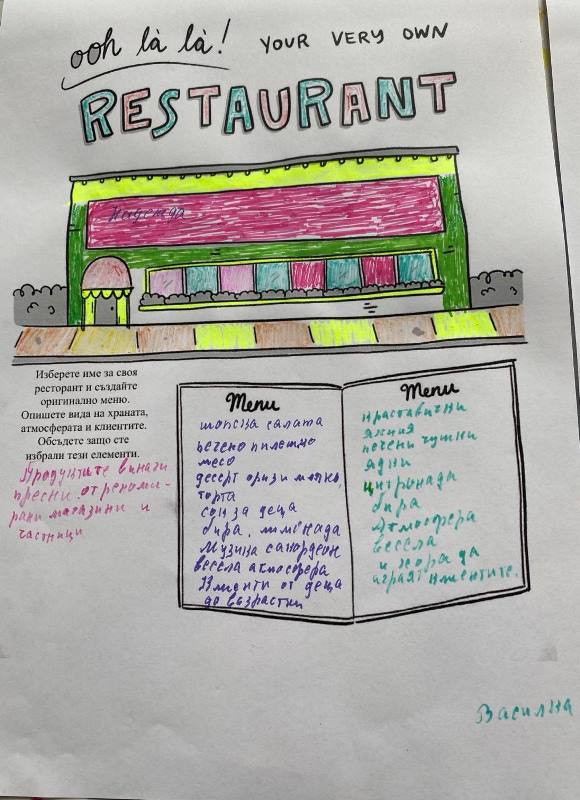 ooh là là! YOUR VERY OWN
RESTAURANT
Надежда
Изберете име за своя
ресторант и създайте
оригинално меню.
Опишете вида на храната,
атмосферата и клиентите.
Обсъдете защо сте
избрали тези елементи.
Продуктите винаги
пресни от реноми-
рани магазини и
частници
Menu
шопска салата
печено пилешко
месо
десерт ориз и мляко,
торта
сок за деца
бира, лимонада
Музика с акордеон
весела атмосфера
Клиенти от деца
до възрастни
Menu
краставички
печени чушки
ядки
цитронада
бира
Атмосфера
весела
и хора да
играят клиентите.
Василка